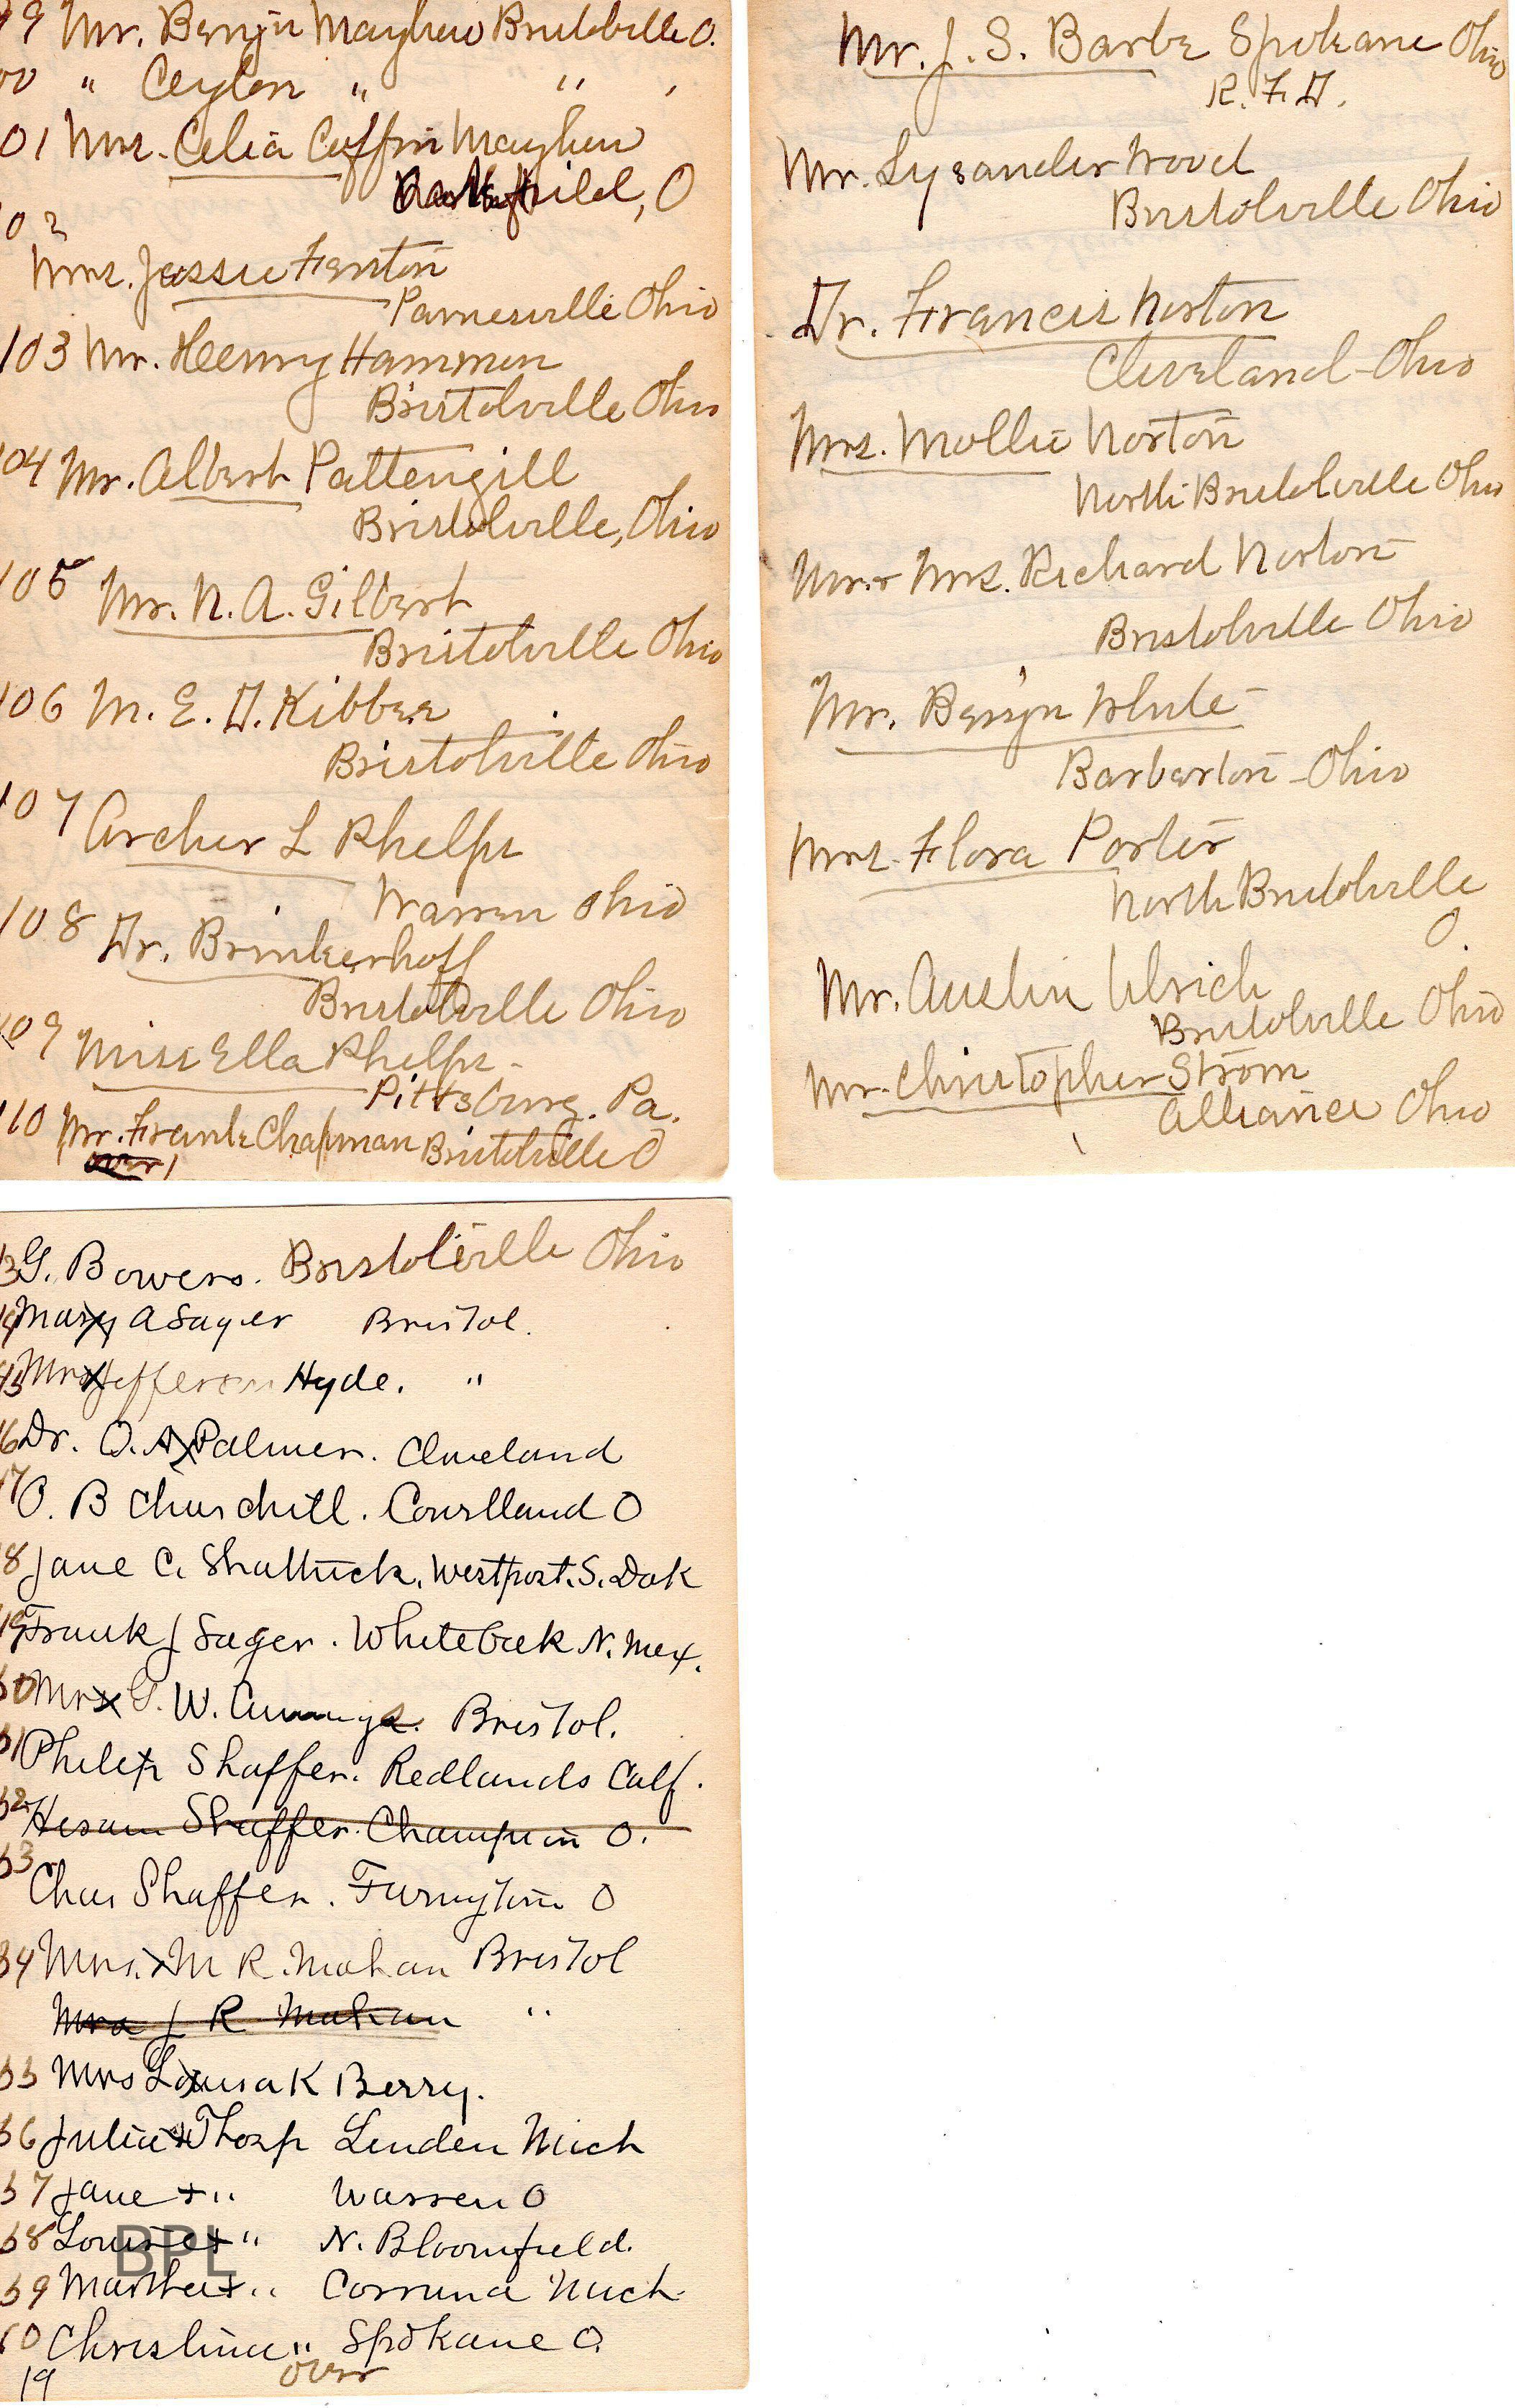 99 Mr. Benjn Mayhew Bristolville O.
00 " Ceylon " " '
01 Mrs. Celia Coffin Mayhew
field, O
02
Mrs. Jessie Fenton
Painesville Ohio
103 Mr. Henry Hammon
Bristolville Ohio
104 Mr. Albert Pattengill
Bristolville, Ohio
105 Mr. N. A. Gilbert
Bristolville Ohio
106 M. E. D. Kibbee
Bristolville Ohio
107 Archer L Phelps
Warren Ohio
108 Dr. Brinkerhoff
Bristolville Ohio
109 Miss Ella Phelps -
Pittsburg. Pa.
110 Mr. Frank Chapman Bristolville O
over
Mr. J. S. Barbe Spokane Ohio
R. F. D.
Mr. Lysander Wood
Bristolville Ohio
Dr. Francis Norton
Cleveland-Ohio
Mrs. Mollie Norton
North Bristolville Ohio
Mr. + Mrs. Richard Norton
Bristolville Ohio
Mr. Benjn White
Barberton-Ohio
Mrs. Flora Porter
North Bristolville
O.
Mr. Austin Ulrich
Bristolville Ohio
Mr. Christopher Strom
Alliance Ohio
G. Bowers. Bristolville Ohio
Mary A Sager Bristol.
Mrs Jefferson Hyde. "
Dr. O. A Palmer. Cleveland
O. B Churchill. Courtland O
Jane C. Shattuck. Westport. S. Dak
Frank J Sager. White N. Mex.
Mrs G. W. Cumings. Bristol.
Philip Shaffer. Redlands Calf.
Hiram Shaffer. Champion O.
Chas Shaffer. Farmington O
Mrs. M R. Mahan Bristol
Mrs J R Mahan "
Mrs Louisa K Berry.
36 Julia Thorp Linden Mich
37 Jane + " Warren O
38 Louise + " N. Bloomfield.
39 Martha + " Corruna Mich.
Christina " Spokane O.
19 over
BPL